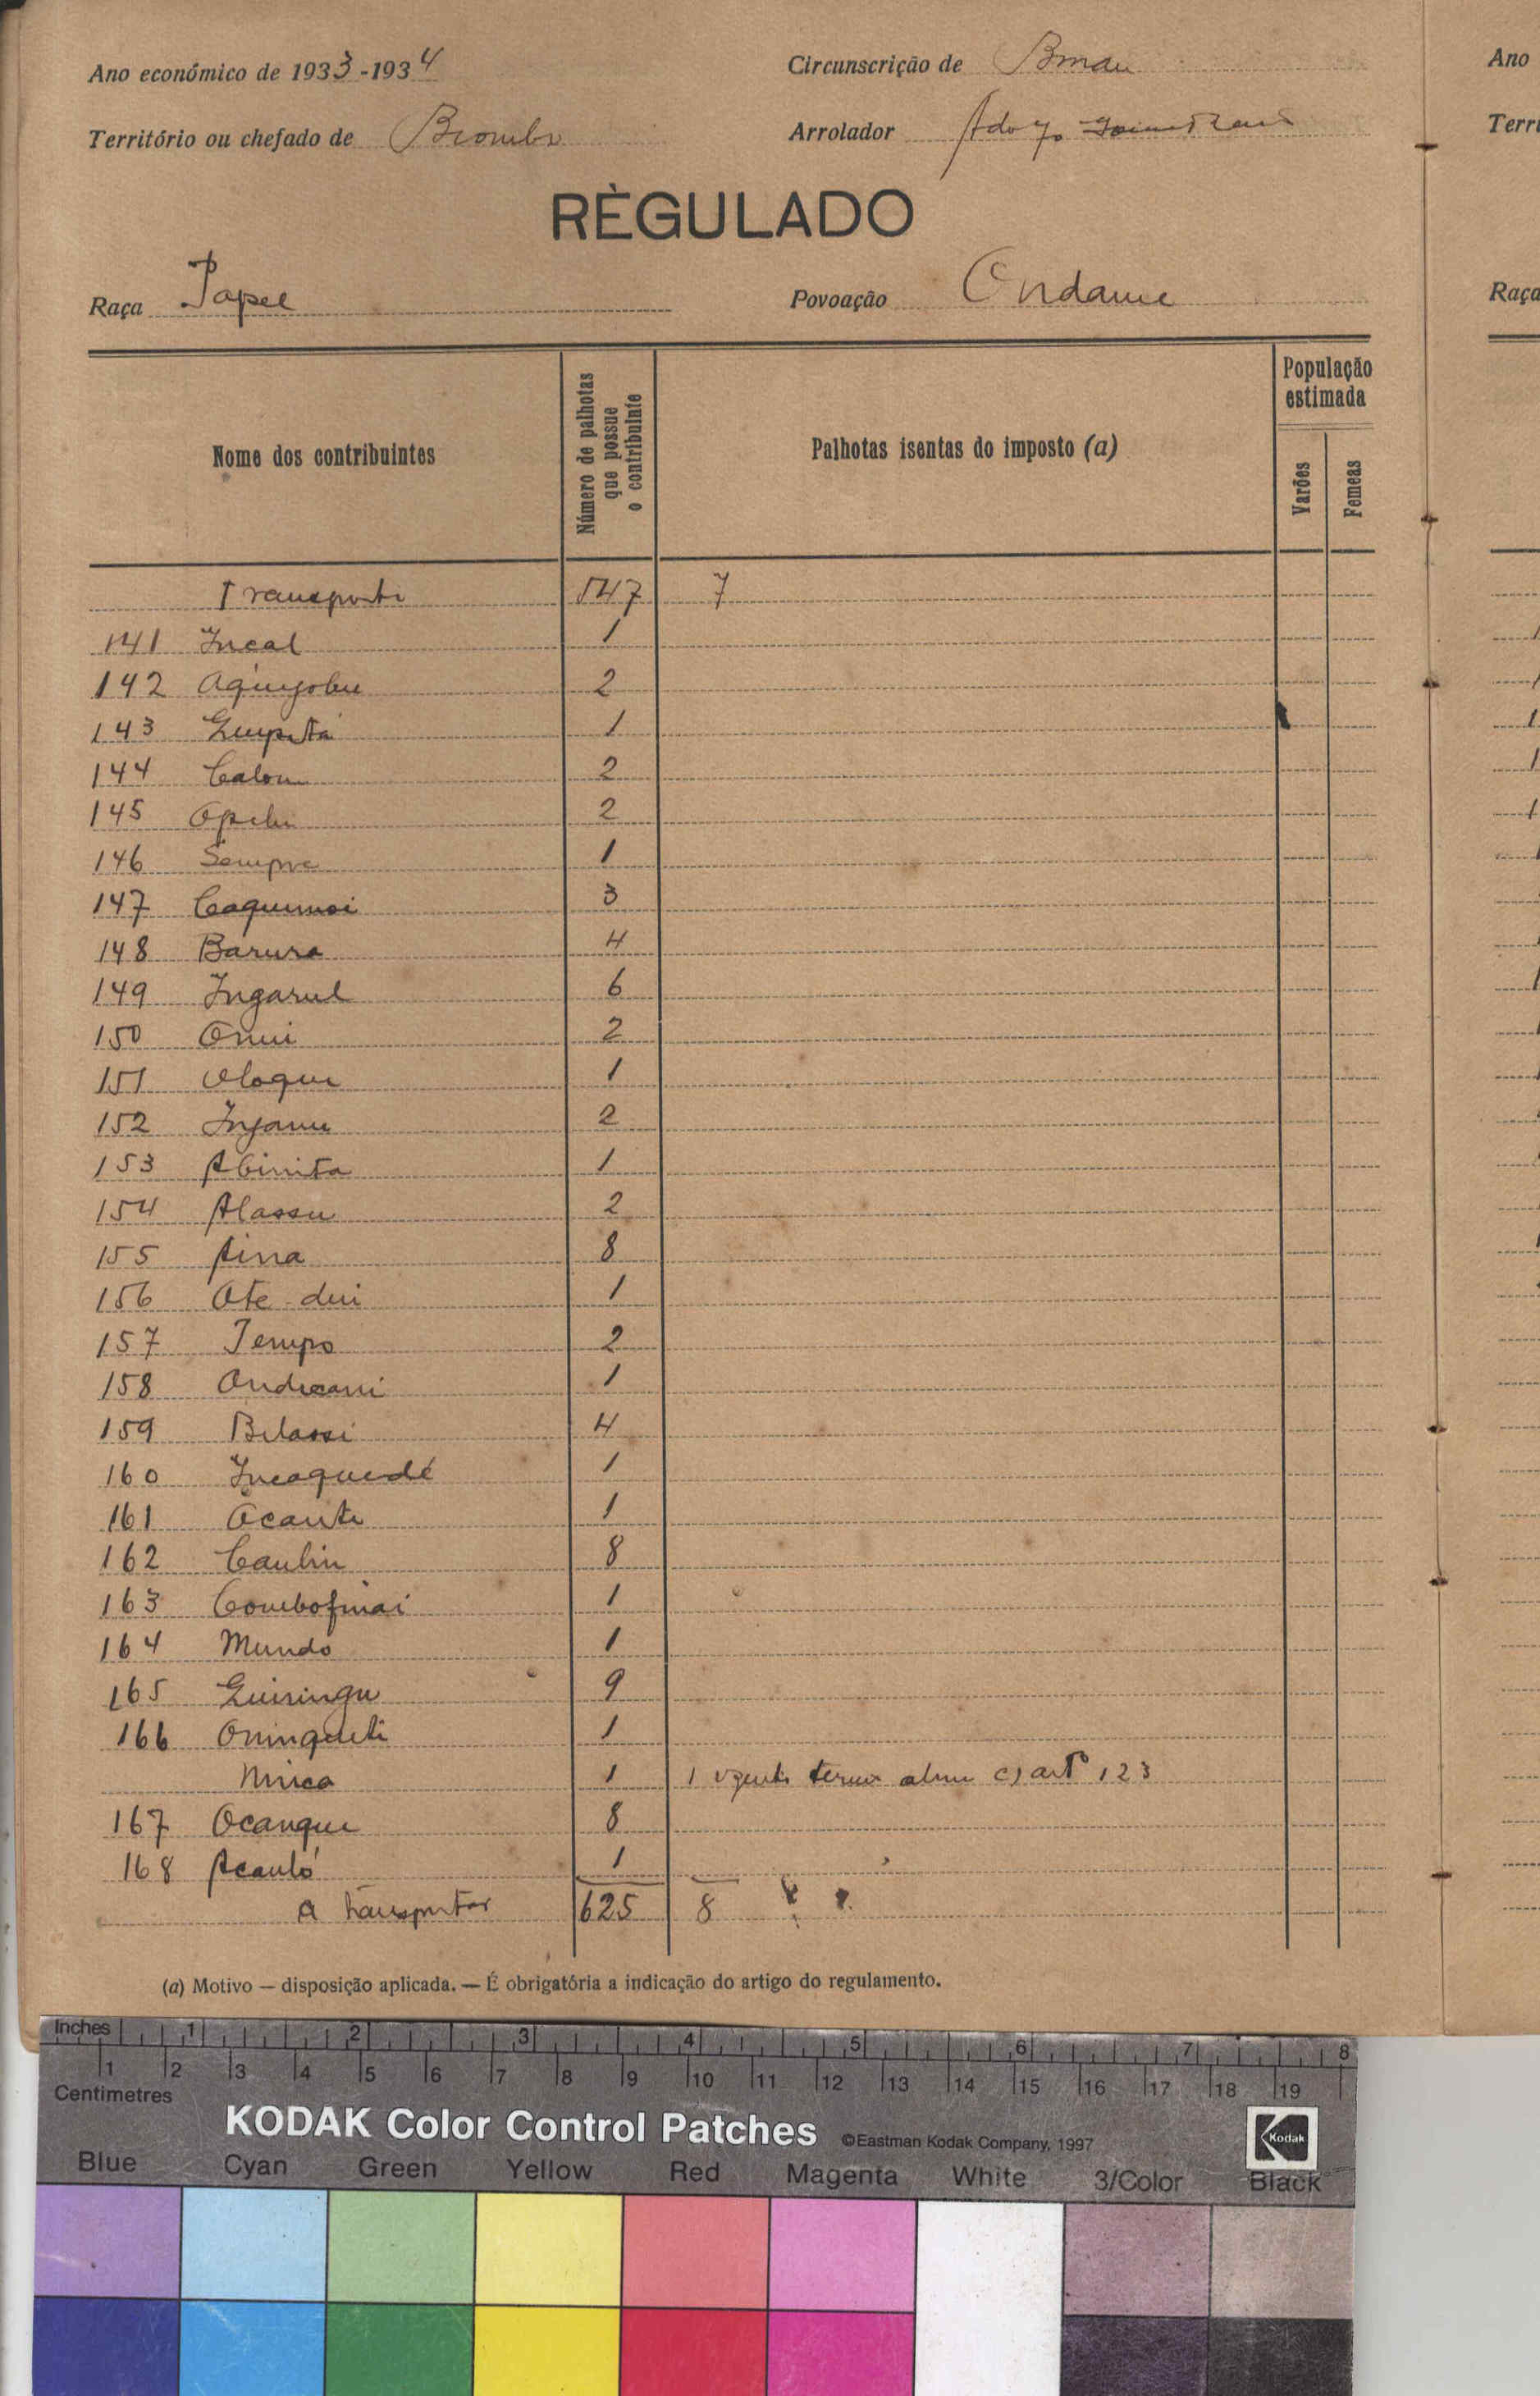 Ano económico de 1933-1934
Circunscrição de Bissau
Território ou chefado de Biombo
Arrolador Adolfo
RÈGULADO
Raça Papel
Povoação Ondame
Nome dos contribuintes
Número de palhotas que possue o contribuinte
Palhotas isentas do imposto (a)
População estimada
Varões
Femeas
Transporte 547 7
141 Incal 1
142 2
143 1
144 Calou 2
145 2
146 Sempre 1
147 3
148 Barura 4
149 Ingarul 6
150 Onui 2
151 Ologue 1
152 2
153 Abinita 1
154 Alassu 2
155 Aina 8
156 Ote-dui 1
157 Tempo 2
158 1
159 Bilassi 4
160 Incaquedé 1
161 Ocante 1
162 8
163 1
164 Mundo 1
165 9
166 Oninqueti 1
1 1 art.º 123
167 Ocanque 8
168 Acauló 1
A transportar 625 8
(a) Motivo — disposição aplicada. — É obrigatória a indicação do artigo do regulamento.
Ano
Terri
Raça
Inches 1 2 3 4 5 6 7 8
1 2 3 4 5 6 7 8 9 10 11 12 13 14 15 16 17 18 19
Centimetres
KODAK Color Control Patches ©Eastman Kodak Company, 1997 Kodak
Blue Cyan Green Yellow Red Magenta White 3/Color Black